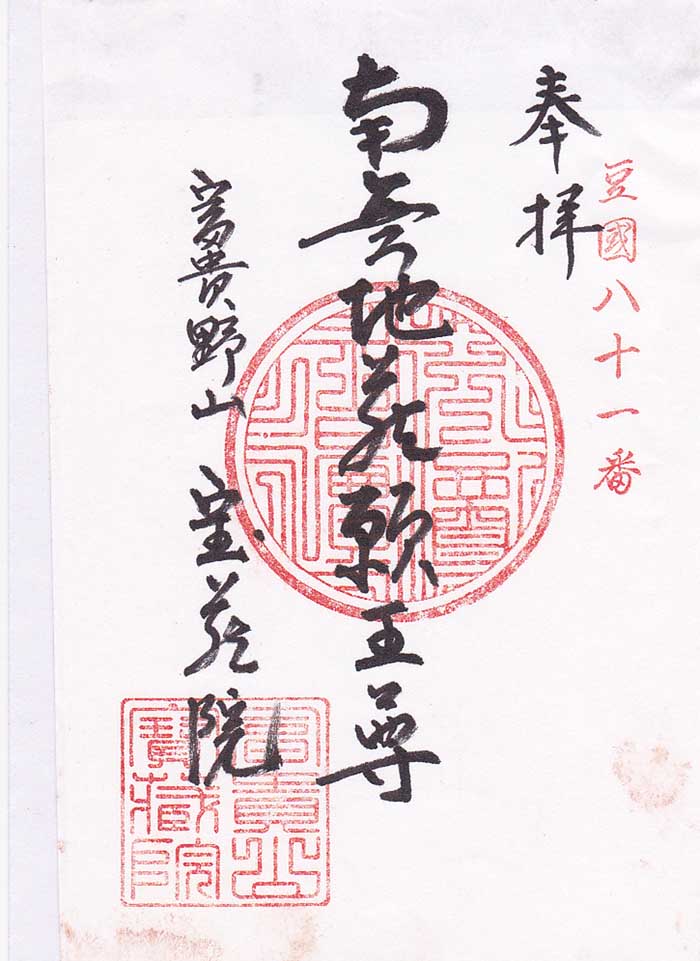 豆國八十一番
奉拝
南無地蔵願王尊
富貴野山 宝蔵院
寶蔵院